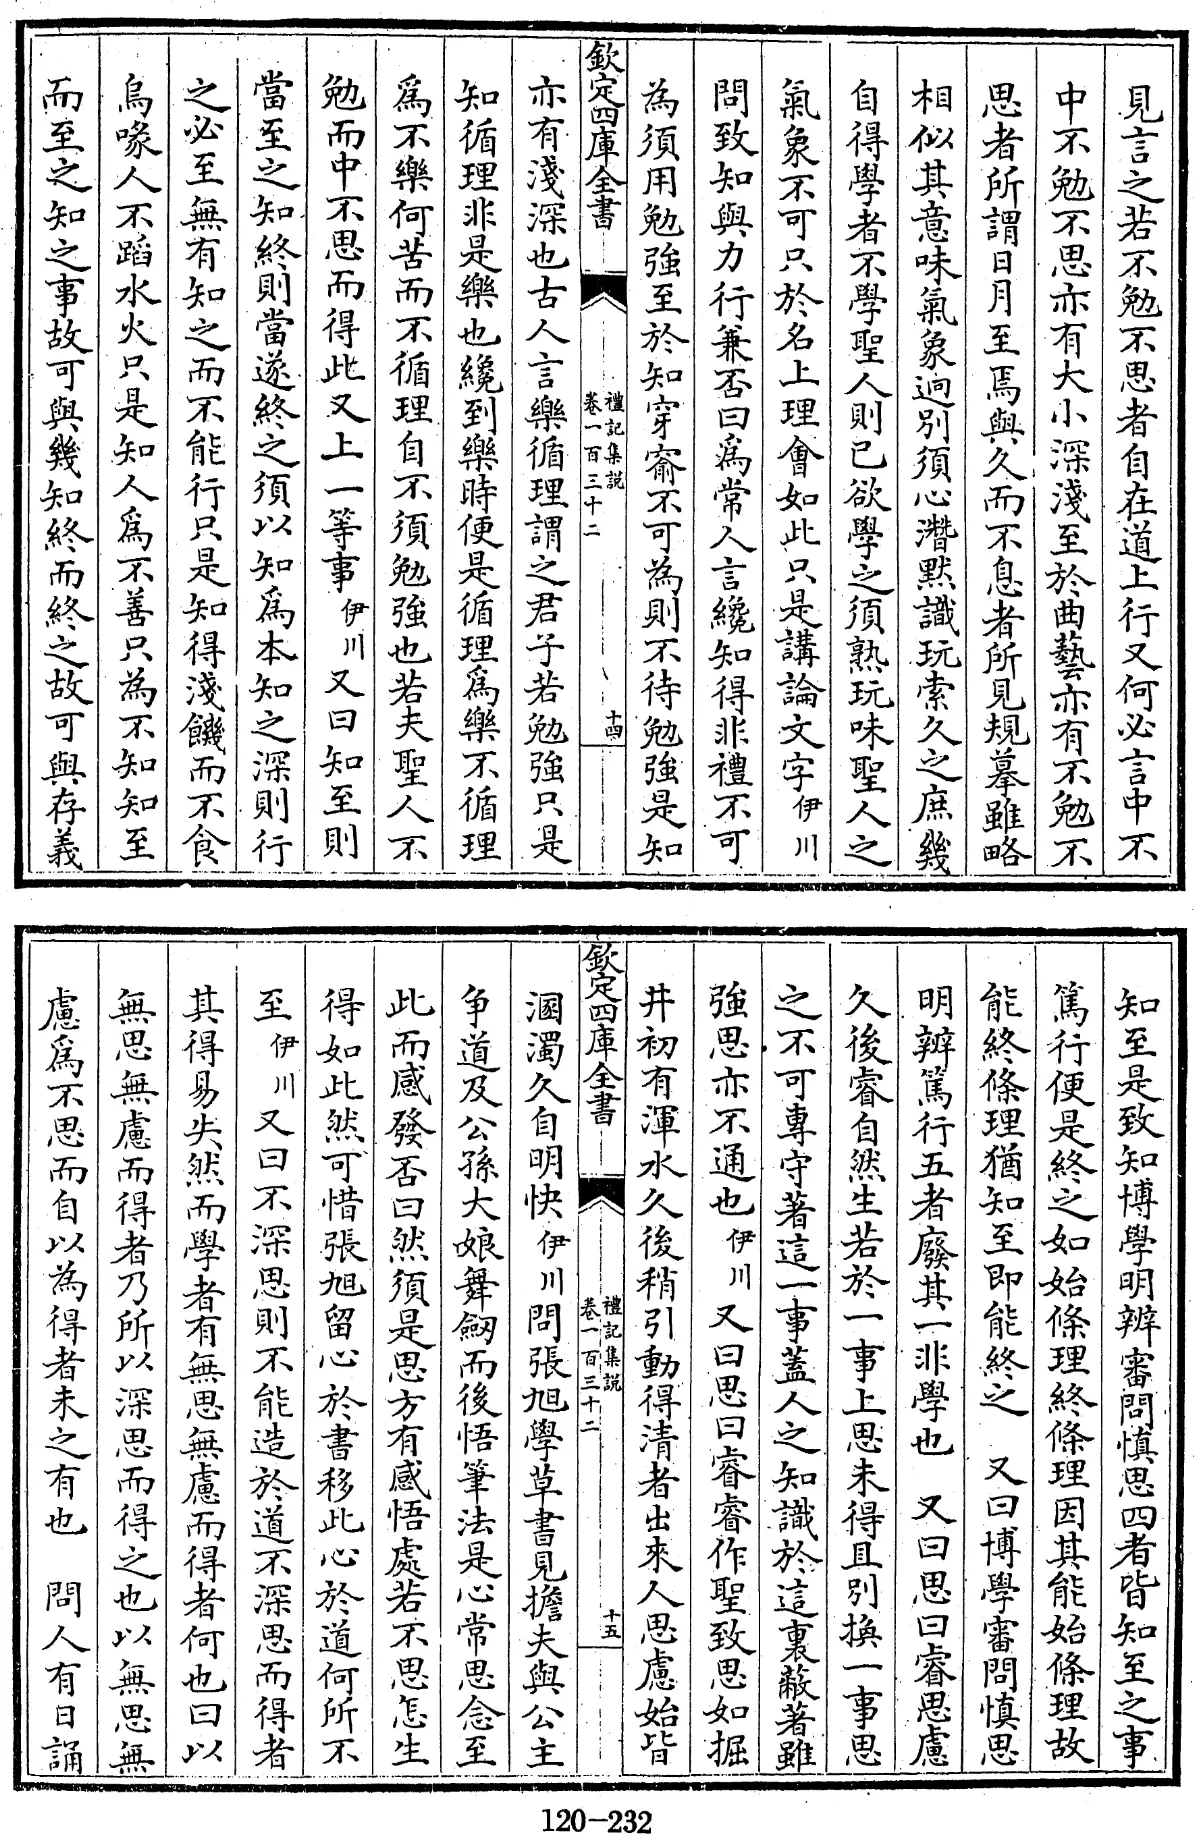 見言之若不勉不思者自在道上行又何必言中不
中不勉不思亦有大小深淺至於曲藝亦有不勉不
思者所謂日月至焉與久而不息者所見規摹雖略
相似其意味氣象逈別須心潛默識玩索久之庶幾
自得學者不學聖人則已欲學之須熟玩味聖人之
氣象不可只於名上理會如此只是講論文字伊川
問致知與力行兼否曰爲常人言纔知得非禮不可
為須用勉強至於知穿窬不可為則不待勉強是知
欽定四庫全書
禮記集説
卷一百三十二
十四
亦有淺深也古人言樂循理謂之君子若勉強只是
知循理非是樂也纔到樂時便是循理爲樂不循理
爲不樂何苦而不循理自不須勉強也若夫聖人不
勉而中不思而得此又上一等事伊川又曰知至則
當至之知終則當遂終之須以知爲本知之深則行
之必至無有知之而不能行只是知得淺饑而不食
烏喙人不蹈水火只是知人爲不善只為不知知至
而至之知之事故可與幾知終而終之故可與存義
知至是致知博學明辨審問慎思四者皆知至之事
篤行便是終之如始條理終條理因其能始條理故
能終條理猶知至即能終之 又曰博學審問慎思
明辨篤行五者廢其一非學也 又曰思曰睿思慮
久後睿自然生若於一事上思未得且別換一事思
之不可專守著這一事蓋人之知識於這裏蔽著雖
強思亦不通也伊川又曰思曰睿睿作聖致思如掘
井初有渾水久後稍引動得清者出來人思慮始皆
欽定四庫全書
禮記集説
卷一百三十二
十五
溷濁久自明快伊川問張旭學草書見擔夫與公主
争道及公孫大娘舞劒而後悟筆法是心常思念至
此而感發否曰然須是思方有感悟處若不思怎生
得如此然可惜張旭留心於書移此心於道何所不
至伊川又曰不深思則不能造於道不深思而得者
其得易失然而學者有無思無慮而得者何也曰以
無思無慮而得者乃所以深思而得之也以無思無
慮爲不思而自以為得者未之有也 問人有日誦
120-232